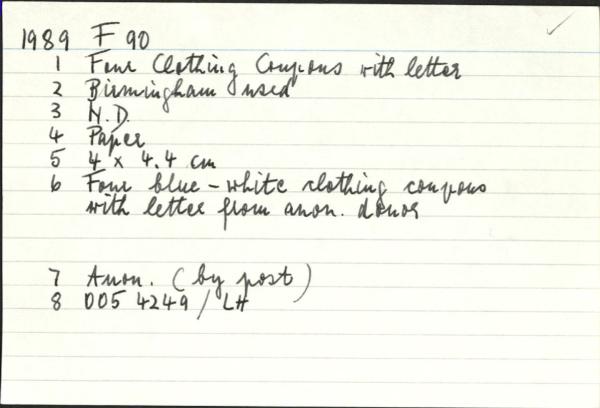 1989 F 90
1 Four Clothing Coupons with letter
2 Birmingham used
3 N.D.
4 Paper
5 4 x 4.4 cm
6 Four blue - white clothing coupons
with letter from anon. donor
7 Anon. (by post)
8 005 4249 / LH